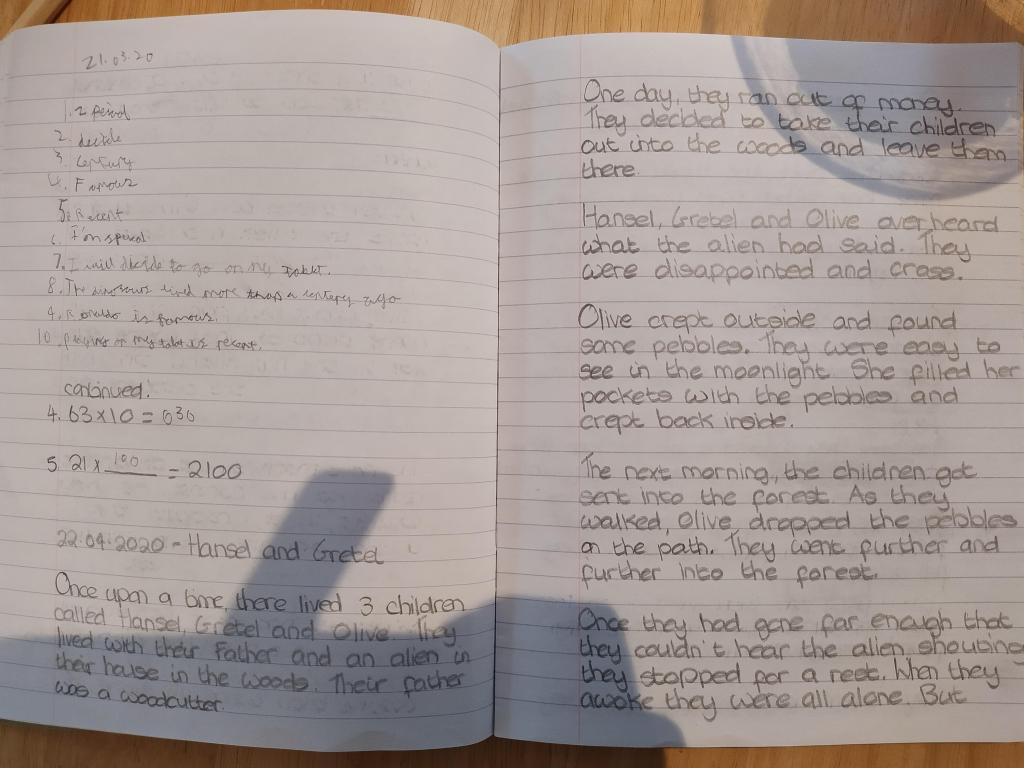 21.03.20
1. 2 period
2. decide
3. Century
4. Famous
5. Recent
6. I'm
7. I will decide to go on my tablet.
8. The dinosaurs lived more than a century ago
9. Ronaldo is famous
10. playing on my tablet is recent.
continued.
4. 63x10 = 630
5. 21 x 100 = 2100
22.04.2020 - Hansel and Gretel
Once upon a time, there lived 3 children
called Hansel, Gretel and Olive. They
lived with their father and an alien in
their house in the woods. Their father
was a woodcutter.
One day, they ran out of money.
They decided to take their children
out into the woods and leave them
there.
Hansel, Gretel and Olive overheard
what the alien had said. They
were disappointed and cross.
Olive crept outside and found
some pebbles. They were easy to
see in the moonlight. She filled her
pockets with the pebbles and
crept back inside.
The next morning, the children get
sent into the forest. As they
walked, Olive, dropped the pebbles
on the path. They went further and
further into the forest.
Once they had gone far enough that
they couldn't hear the alien shouting
they stopped for a rest. When they
awoke they were all alone. But